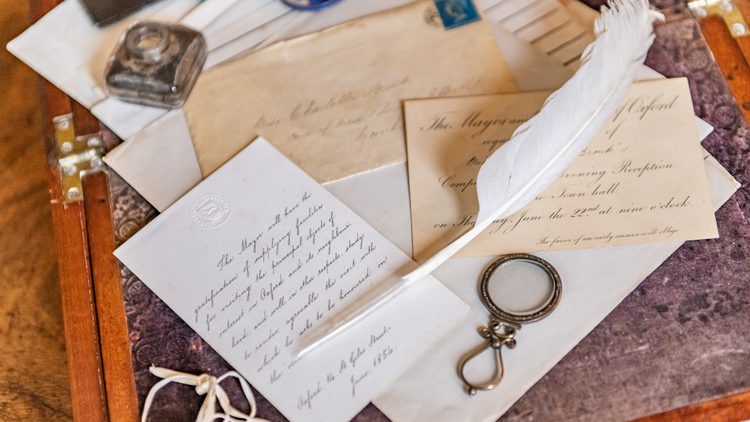 Miss Charlotte
The Mayor and of Oxford
requ of
Evening Reception
Town hall,
on Thu June the 22nd at nine o'clock
The favor of an early answer will oblige
The Mayor will have the
gratification of supplying facilities
for visiting the principal objects of
interest in Oxford and its neighbour
hood, and will, in other respects, study
to render agreeable the visit with
which he asks to be honoured on
the
Oxford, St Giles Street.
June 1854